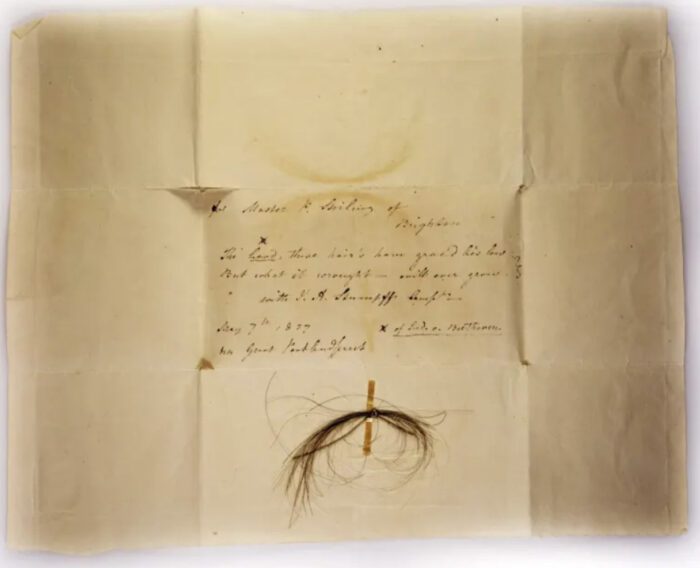 for Master P. of
Brighton
x
The head, these hair's have grac'd lies low
But what it wrought — will ever grow.
with J. A. Stumpff's Compts
May 7th 1827 x of Ludw. v. Beethoven.
Great Portland Street